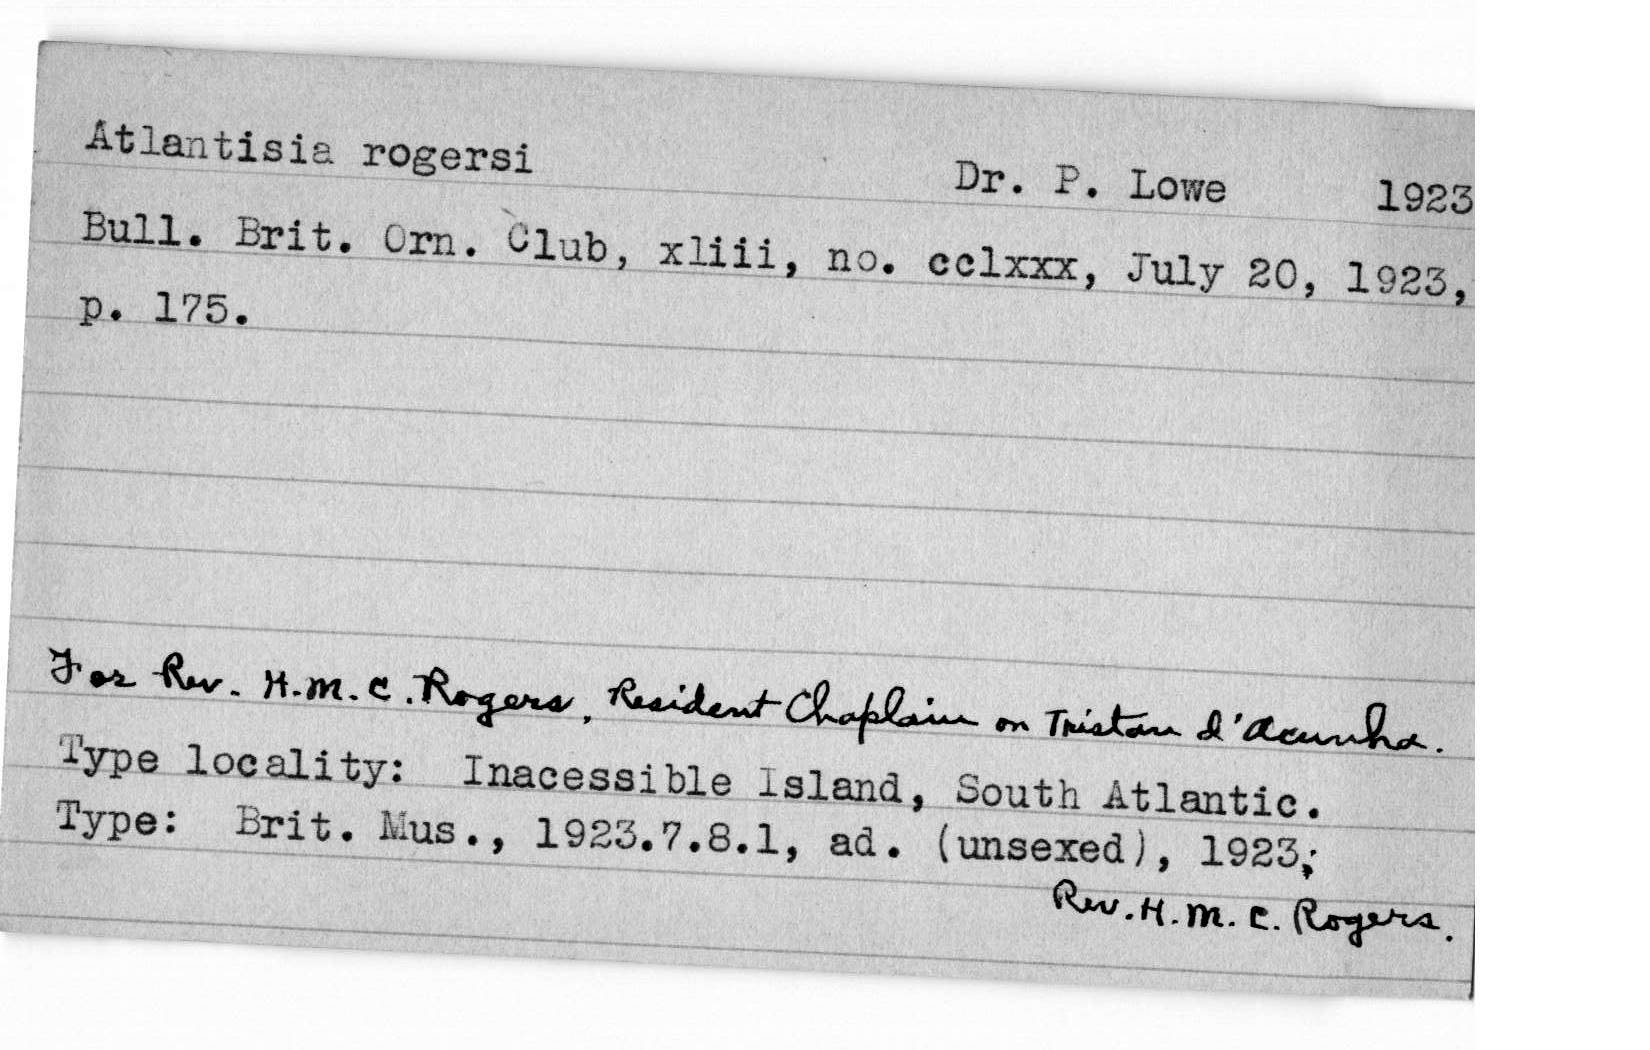 Atlantisia rogersi Dr. P. Lowe 1923
Bull. Brit. Orn. Club, xliii, no. cclxxx, July 20, 1923,
p. 175.
For Rev. H.M.C. Rogers, Resident Chaplain on Tristan d'Acunha.
Type locality: Inacessible Island, South Atlantic.
Type: Brit. Mus., 1923.7.8.1, ad. (unsexed), 1923;
Rev. H.M.C. Rogers.